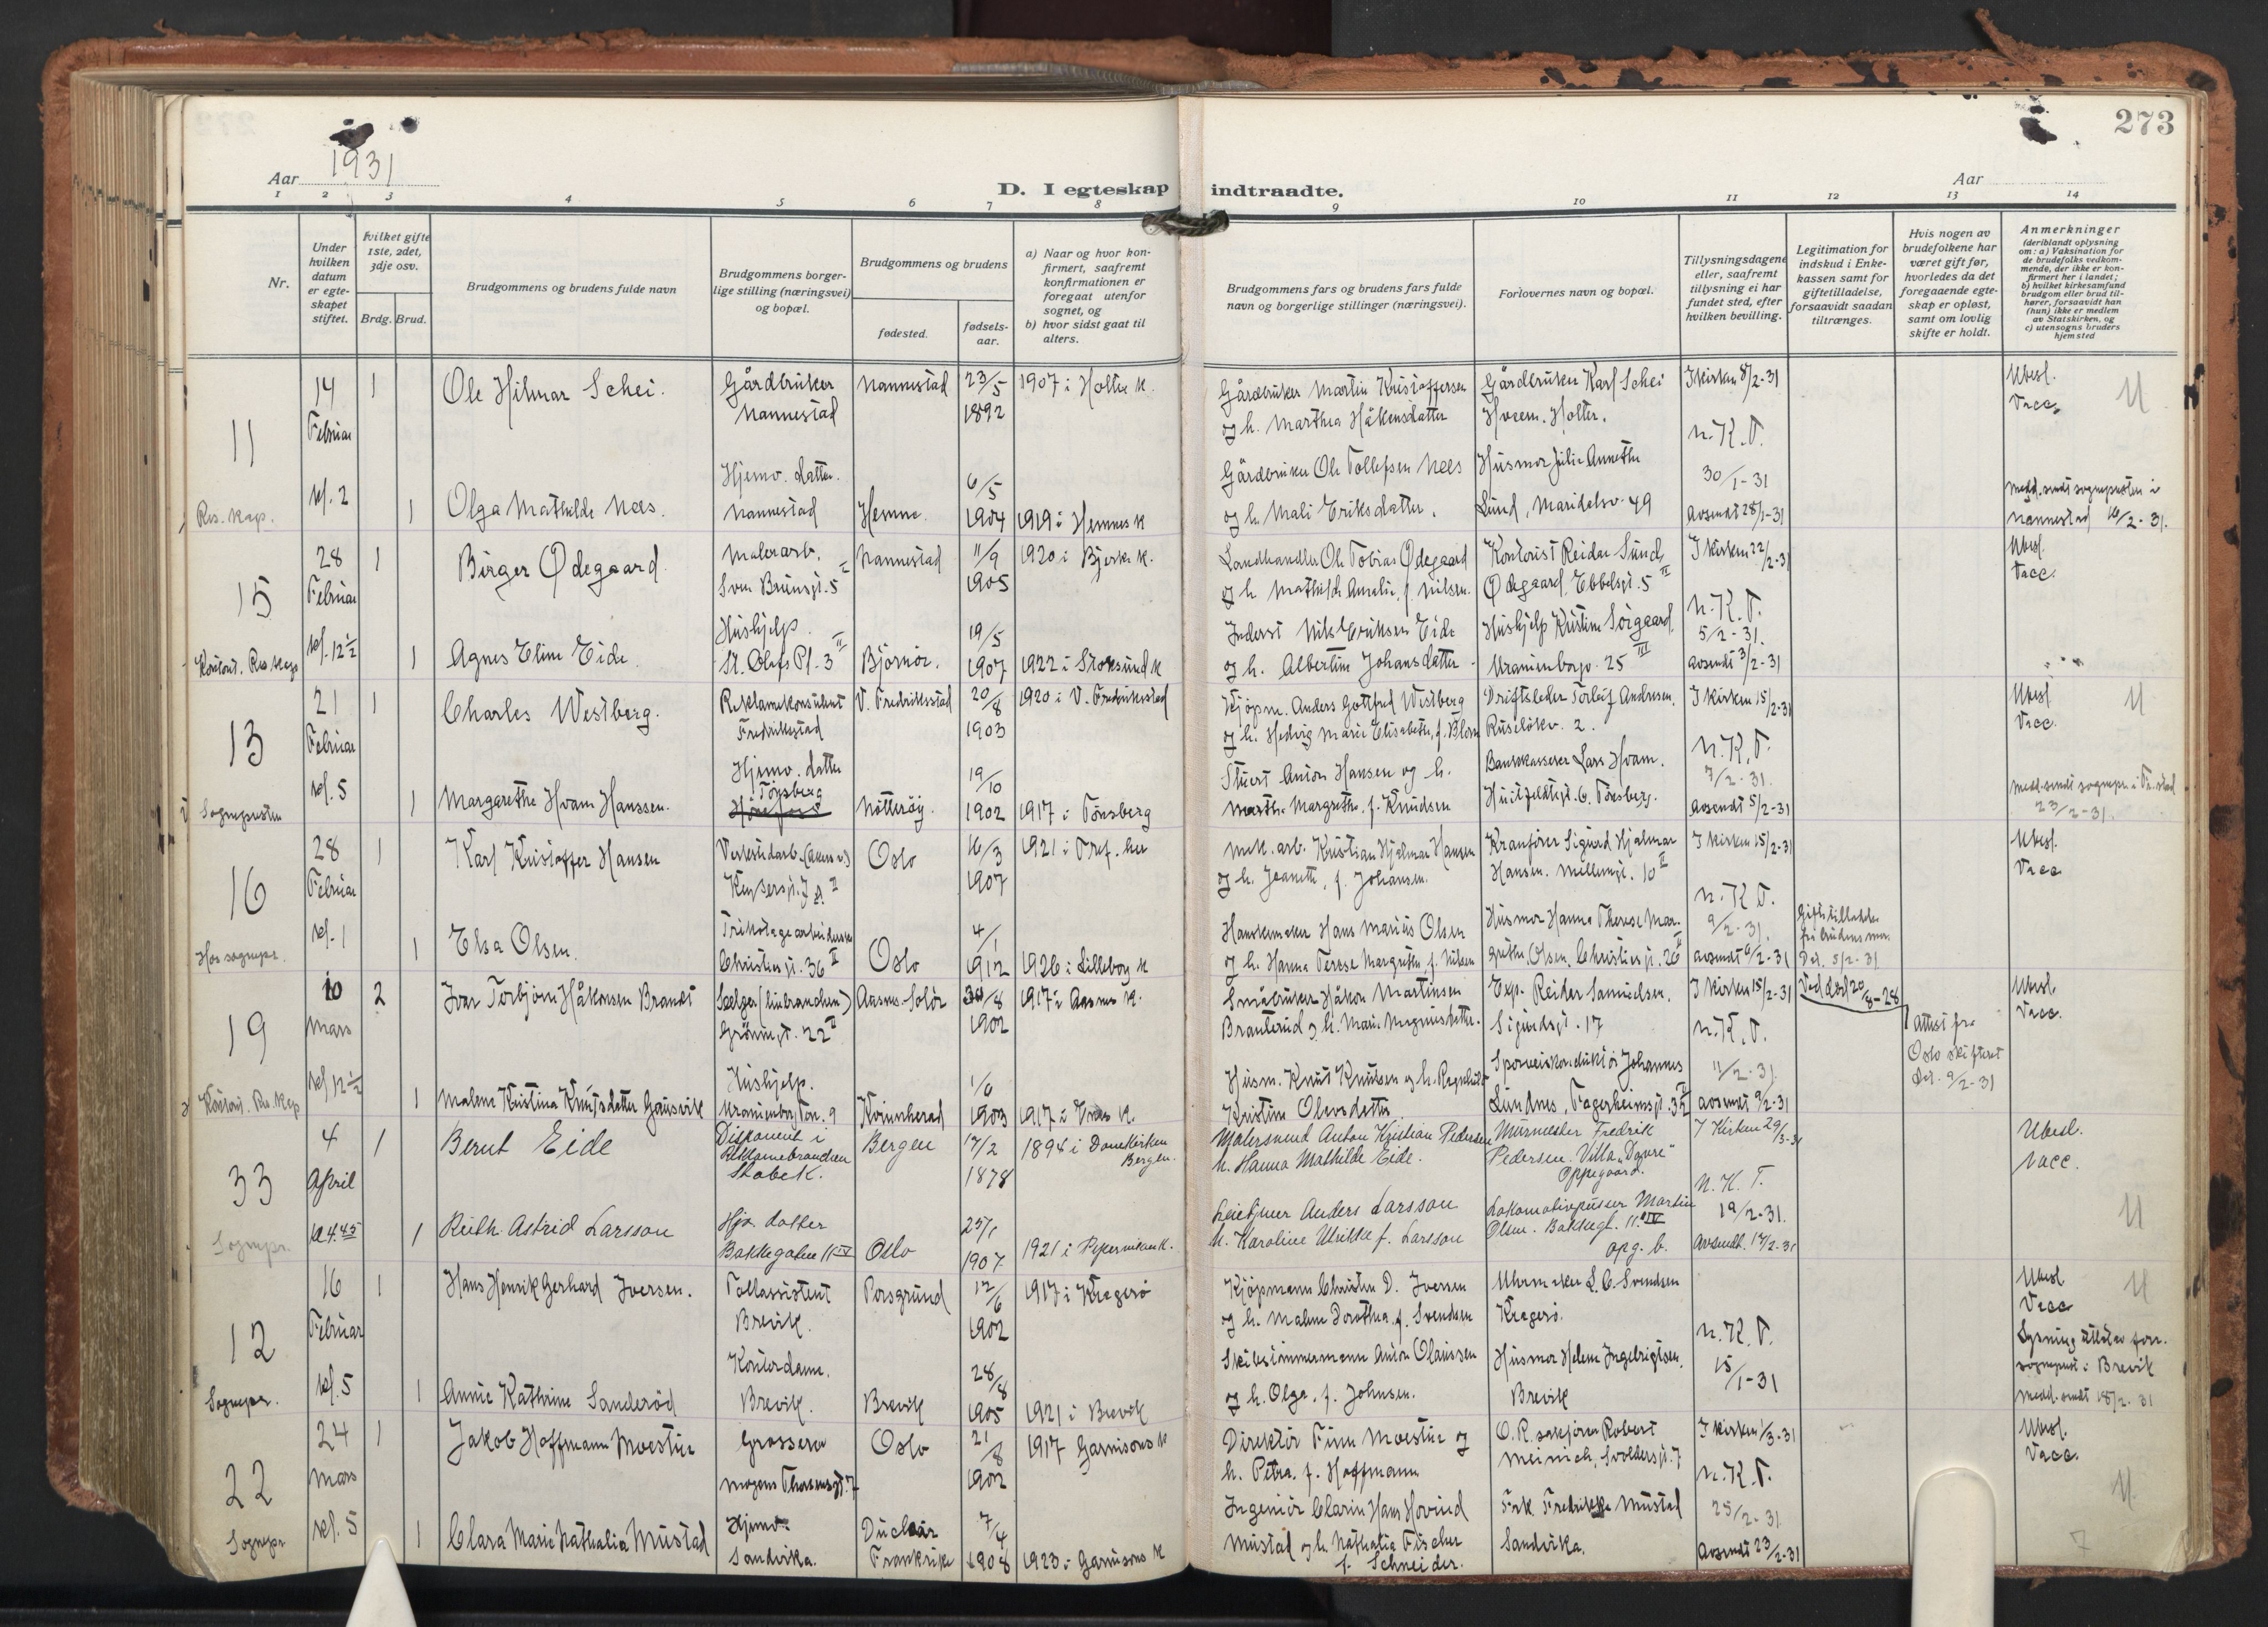 273
Aar 1931
D. I egteskap indtraadte.
Aar
1 2 3 4 5 6 7 8 9 10 11 12 13 14
Nr.
Under hvilken datum er egte-skapet stiftet.
Hvilket gifte 1ste, 2det, 3dje osv.
Brdg. Brud.
Brudgommens og brudens fulde navn
Brudgommens borger-lige stilling (næringsvei) og bopæl.
Brudgommens og brudens
fødested.
fødsels-aar.
a) Naar og hvor kon-firmert, saafremt konfirmationen er foregaat utenfor sognet, og
b) hvor sidst gaat til alters.
Brudgommens fars og brudens fars fulde navn og borgerlige stillinger (næringsvei).
Forlovernes navn og bopæl.
Tillysningsdagene eller, saafremt tillysning ei har fundet sted, efter hvilken bevilling.
Legitimation for indskud i Enke-kassen samt for giftetilladelse, forsaavidt saadan tiltrænges.
Hvis nogen av brudefolkene har været gift før, hvorledes da det foregaaende egte-skap er opløst, samt om lovlig skifte er holdt.
Anmerkninger (deriblandt oplysning om: a) Vaksination for de brudefolks vedkom-mende, der ikke er kon-firmert her i landet; b) hvilket kirkesamfund brudgom eller brud til-hører, forsaavidt han (hun) ikke er medlem av Statskirken, og c) utensogns bruders hjemsted
11
14 Februar kl. 2
Res. Kap.
1 Ole Hilmar Schei. Gårdbruker Nannestad Nannestad 23/5 1892 1907 i Holter k.
Gårdbruker Martin Kristoffersen og h. Marthea Håkensdatter
Gårdbruker Karl Schei Hveem. Holter.
I kirken 8/2-31
Ubesl. Vacc.
1 Olga Mathilde Næs. Hjemv. datter. Nannestad Hemne 6/5 1904 1919 i Hemnes k
Gårdbruker Ole Tollefsen Næs og h. Mali Eriksdatter.
Husmor Julie Annethe Lund, Maridalsv. 49
N.K.T. 30/1-31 avsendt 28/1-31
Medd. sendt sognepresten i Nannestad 16/2-31.
15
28 Februar kl. 12½
Kontoret. Res Kap
1 Birger Ødegaard. Malerarb. Sven Brunsgt. 5 I Nannestad 11/9 1905 1920 i Bjerke k.
Landhandler Ole Tobias Ødegaard og h. Mathilde Amalie, f. Nilsen.
Kontorist Reidar Sund, Ødegaard, Ebbelsgt. 5 II
I kirken 22/2-31
Ubesl. Vacc.
1 Agnes Eline Eide. Hushjelp. St. Olafs Pl. 3 II Bjørnør. 19/5 1907 1922 i Stoksund k
Inderst Nils Eriksen Eide og h. Albertine Johansdatter
Hushjelp Kristine Sørgaard, Uranienborgv. 25 III
N.K.T. 5/2-31. avsendt 3/2-31
13
21 Februar kl. 5
Sognepresten
1 Charles Westberg. Reklamekonsulent Fredrikstad V. Fredrikstad 20/8 1903 1920 i V. Fredrikstad
Kjøpm. Anders Gottfred Westberg og h. Hedvig Marie Elisabeth, f. Blom
Driftsleder Torleif Andresen, Ruseløkv. 2.
I kirken 15/2-31
Ubesl. Vacc.
1 Margarethe Hvam Hanssen. Hjemv. datter Tønsberg Nøtterøy. 19/10 1902 1917 i Tønsberg
Stuert Anton Hansen og h. Marthe Margrethe, f. Knudsen
Bankkasserer Lars Hvam. Huitfeldtsgt. 6. Tønsberg.
N.K.T. 7/2-31. avsendt 5/2-31
Medd. sendt sognepr. i Fr.stad 23/2-31.
16
28 Februar kl. 1
Hos sognepr.
1 Karl Kristoffer Hansen Verkstedarb. (Akers v.) Keysersgt. 7 II Oslo 16/3 1907 1921 i Tref. her
Mek. arb. Kristian Hjalmar Hansen og h. Jeanette, f. Johansen.
Kranfører Sigurd Hjalmar Hansen. Møllergt. 10 II
I kirken 15/2-31
Ubesl. Vacc
1 Elsa Olsen. Trikotagearbeiderske Christiesgt. 36 II Oslo 4/1 1912 1926 i Lilleborg k
Hanskemaker Hans Marius Olsen og h. Hanna Terese Margrethe, f. Nilsen
Husmor Hanna Therese Mar-grethe Olsen. Christiesgt. 26 II
N.K.T. 9/2-31. avsendt 6/2-31
Giftetilladelse fra brudens mor. Dat. 5/2-31
19
10 Mars kl 12½
Kontoret. Res. Kap
2 Ivar Torbjørn Håkonsen Brandt Selger (linbranchen) Grønnegt. 22 II Aasnes-Solør 30/8 1902 1917 i Aasnes k.
Småbruker Håkon Martinsen Branterud og h. Marie Magnusdatter.
Exp. Reidar Samuelsen, Sigurdsgt. 17
I kirken 15/2-31
Ved død 20/8-28
Attest fra Oslo skifteret dat. 9/2-31
Ubesl. Vacc.
1 Malene Kristina Knutsdatter Gausvik Hushjelp. Uranienborg Ter. 9 Kvinnherad 1/6 1903 1917 i Enes k.
Husm. Knut Knutsen og h. Ragnhild Kristine Olavsdatter.
Sporveiskonduktør Johannes Lundnes, Fagerheimsgt. 32 II
N.K.T. 11/2-31. avsendt 9/2-31
33
4 April kl 4.45
Sognepr.
1 Bernt Eide Disponent i Reklamebranchen Stabekk. Bergen 17/2 1878 1894 i Domkirken Bergen.
Malersvend Anton Kristian Pedersen h. Hanna Mathilde Eide.
Murmester Fredrik Pedersen. Villa "Dovre" Oppegaard.
I Kirken 29/3-31
Ubesl. Vacc.
1 Ruth Astrid Larsson Hjv. datter Bakkegaten 11 IV Oslo 25/1 1907 1921 i Pipervikens k.
Anders Larsson h. Karoline Ulrikke f. Larsson
Lokomotivpusser Martin Olsen. Bakkegt. 11 IV opg. b.
N.K.T. 19/2-31. Avsendt. 17/2-31
12
16 Februar kl. 5
Sognepr.
1 Hans Henrik Gerhard Iversen. Tollassistent Brevik. Porsgrund 12/6 1902 1917 i Kragerø
Kjøpmann Christen D. Iversen og h. Malene Dorothea, f. Svendsen
Uhrmaker L. C. Svendsen Kragerø.
Ubesl Vacc
1 Annie Kathrine Sanderød Kontordame. Brevik. Brevik 28/8 1905 1921 i Brevik
Skibstømmermann Anton Olaussen og h. Olga, f. Johnsen.
Husmor Helene Ingebrigtsen. Brevik
N.K.T. 15/1-31
Lysning utstedt av sognepr. i Brevik Medd. sendt 18/2-31
22
24 Mars kl. 5
Sognepr
1 Jakob Hoffmann Moestue Grosserer Mogens Thorsensgt. 7 Oslo 21/8 1902 1917 Garnisons k
Direktør Finn Moestue og h. Petra, f. Hoffmann
O.R. sakfører Robert Meinich, Svoldersgt. 7
I kirken 1/3-31
Ubesl. Vacc.
1 Clara Marie Nathalia Mustad Hjemv. Sandvika. Duclair Frankrike 7/4 1908 1923 i Garnisons k
Ingeniør Clarin Hans Hovind Mustad og h. Nathalia Fischer f. Schneider.
Frk. Fredrikke Mustad Sandvika.
N.K.T. 25/2-31 avsendt 23/2-31